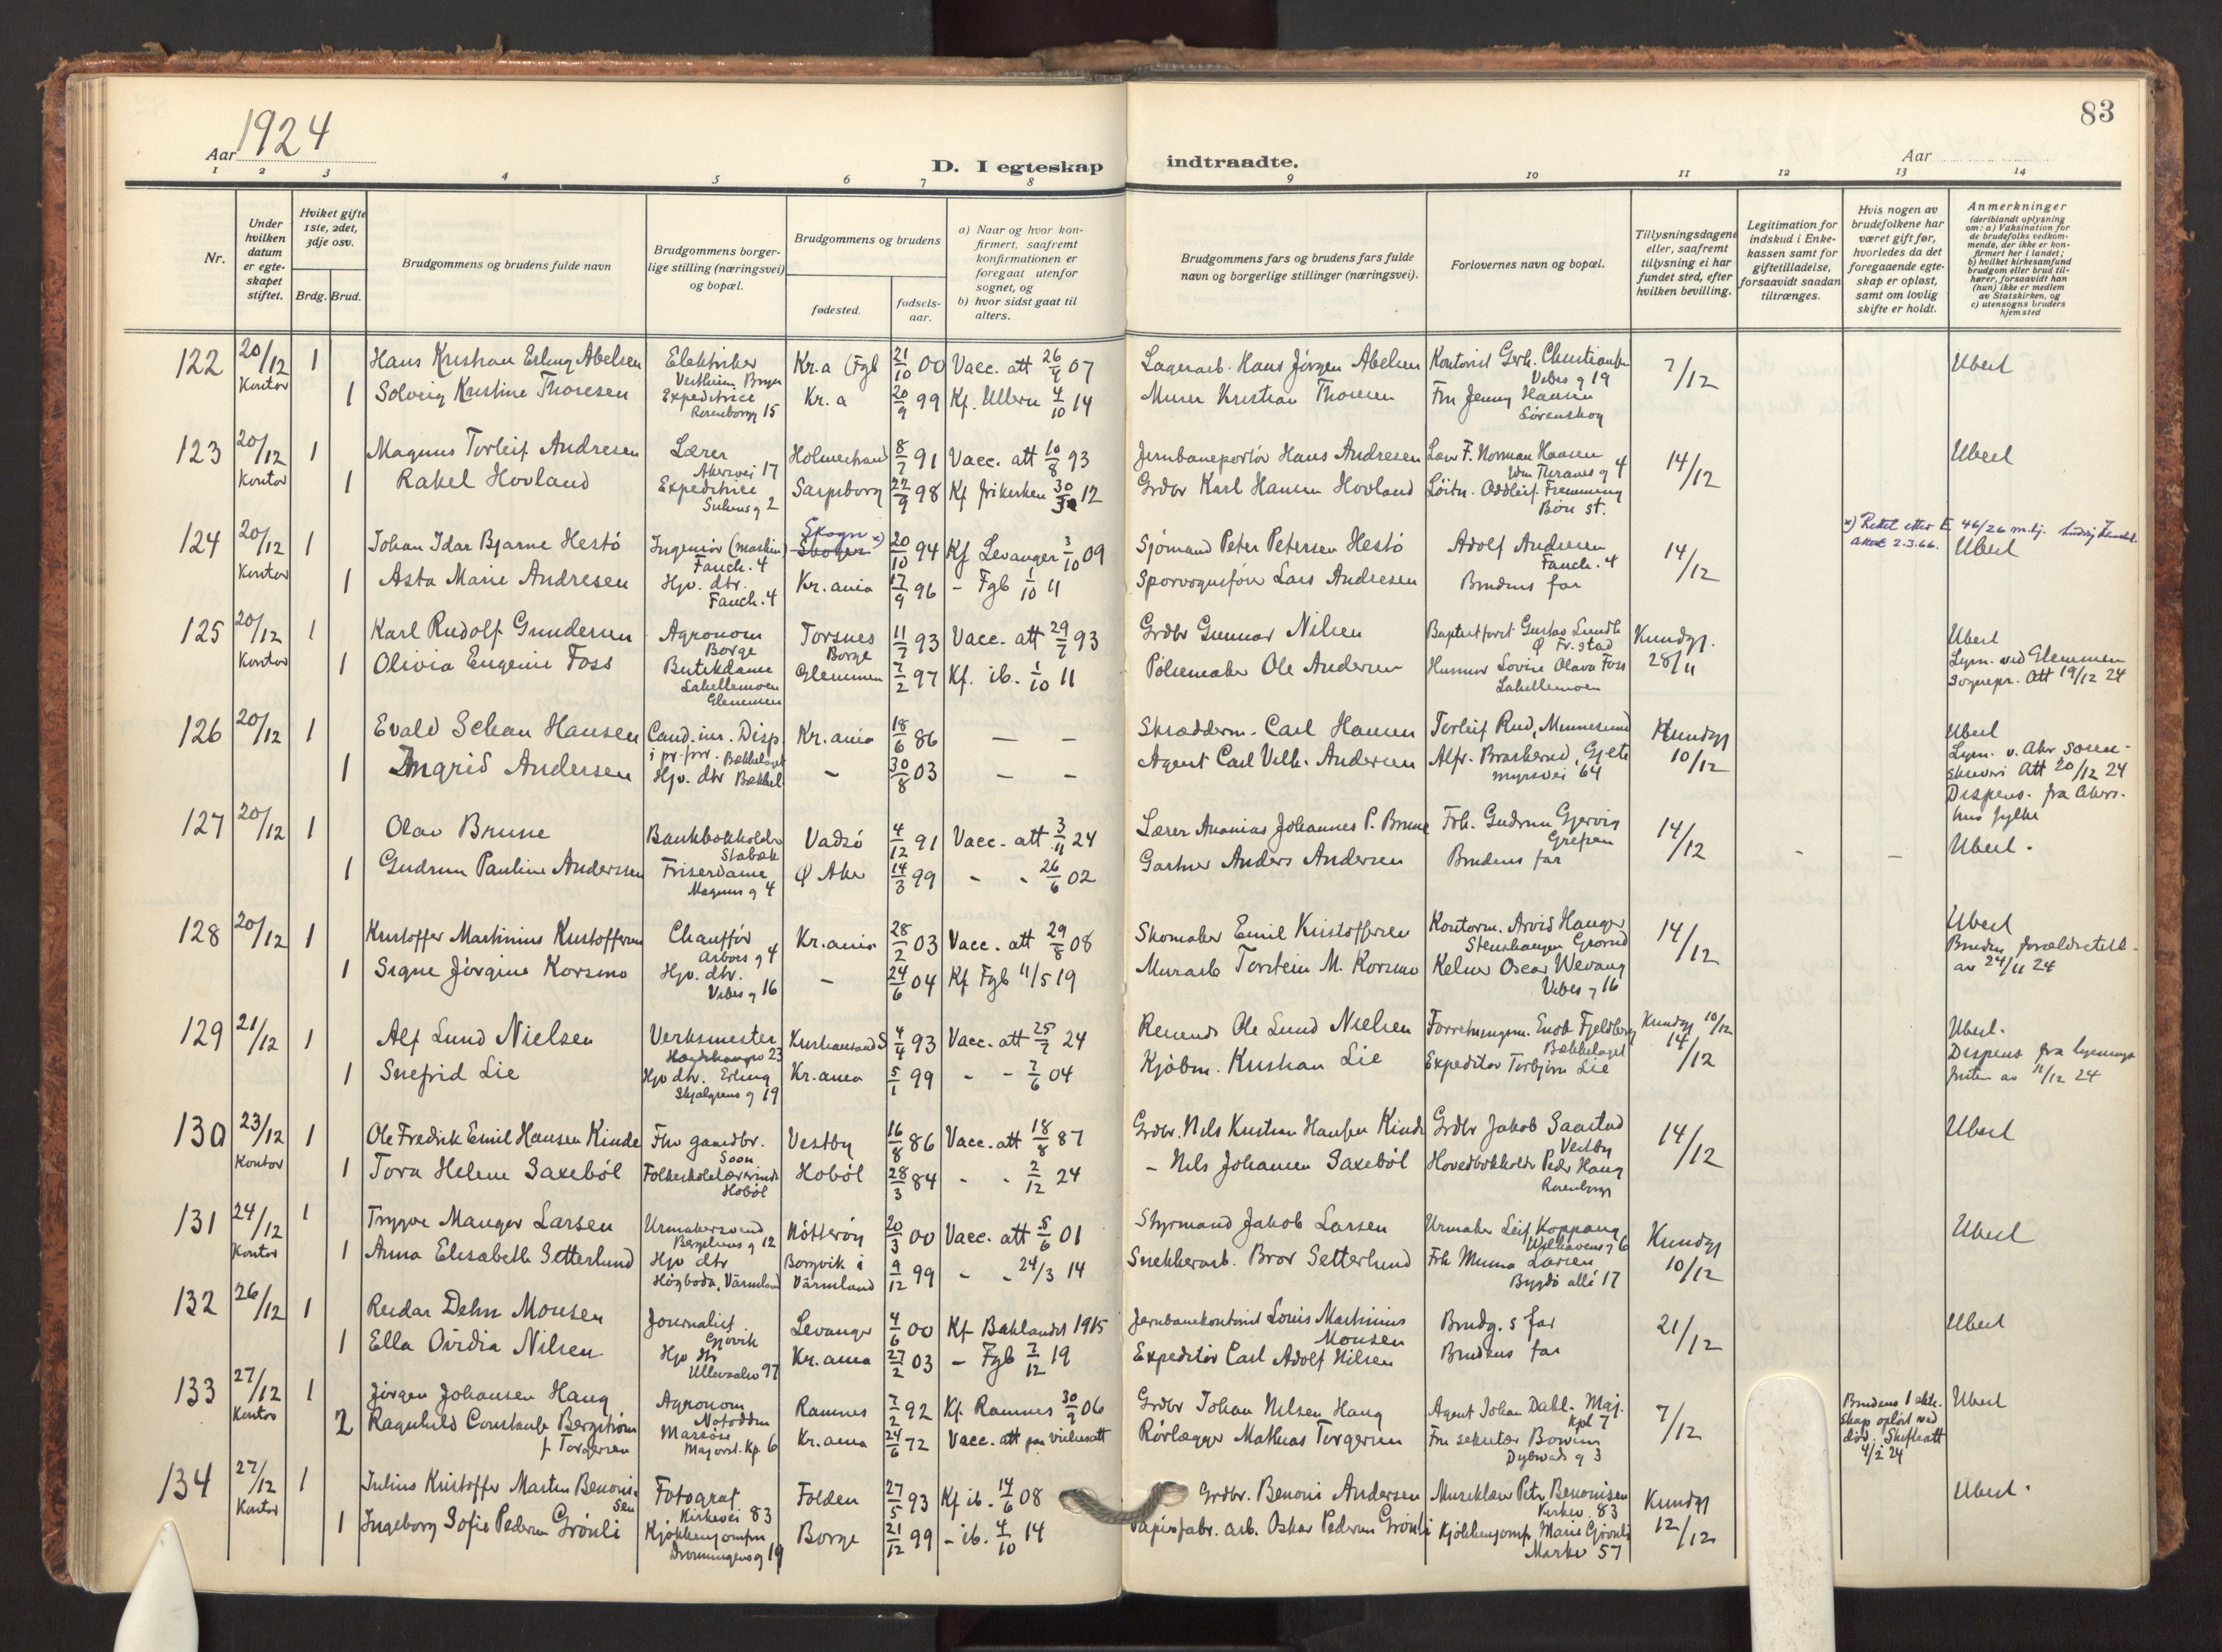 1924
Aar
83
D. I egteskap indtraadte.
Aar
1 2 3 4 5 6 7 8 9 10 11 12 13 14
Nr.
Under hvilken datum er egte-skapet stiftet.
Hviket gifte 1ste, 2det, 3dje osv.
Brdg. Brud.
Brudgommens og brudens fulde navn
Brudgommens borger-lige stilling (næringsvei) og bopæl.
Brudgommens og brudens
fødested.
fødsels-aar.
a) Naar og hvor kon-firmert, saafremt konfirmationen er foregaat utenfor sognet, og
b) hvor sidst gaat til alters.
Brudgommens fars og brudens fars fulde navn og borgerlige stillinger (næringsvei).
Forlovernes navn og bopæl.
Tillysningsdagene eller, saafremt tillysning ei har fundet sted, efter hvilken bevilling.
Legitimation for indskud i Enke-kassen samt for giftetilladelse, forsaavidt saadan tiltrænges.
Hvis nogen av brudefolkene har været gift før, hvorledes da det foregaaende egte-skap er opløst, samt om lovlig skifte er holdt.
Anmerkninger (deriblandt oplysning om: a) Vaksination for de brudefolks vedkom-mende, der ikke er kon-firmert her i landet; b) hvilket kirkesamfund brudgom eller brud til-hører, forsaavidt han (hun) ikke er medlem av Statskirken, og c) utensogns bruders hjemsted
122 20/12 1 Hans Kristian Erling Abelsen Elektriker Kr.a (Fgb 21/10 00 Vacc. att 26/9 07 Lagerarb. Hans Jörgen Abelsen Kontorist Gerh. Christiansen Vibes g 19 7/12 Uberl
Kontor 1 Solveig Kristine Thoresen Expeditrice Rosenborgg 15 Kr. a 20/9 99 Kf. Ullern 4/10 14 Murer Kristian Thoresen Fru Jenny Hansen Sörenskog
123 20/12 1 Magnus Torleif Andresen Lærer Akersvei 17 Holmestrand 8/7 91 Vacc. att 10/8 93 Jernbaneportör Hans Andresen Lærer F. Norman Hansen Wm Thranes g 4 14/12 Uberl
Kontor 1 Rakel Hovland Expeditrice 2 Sarpsborg 22/9 98 Kf frikirken 30/ 12 Grdbr Karl Hansen Hovland Löitn. Oddleif Bön st.
124 20/12 1 Johan Idar Bjarne Hestö Ingeniör (maskin) Fauch. 4 Skogn x) 20/10 94 Kf Levanger 3/10 09 Sjömand Peter Petersen Hestö Adolf Andresen Fauch. 4 14/12 Uberl
x) Rettet efter E 46/26 m.bj. 2.3.66.
Kontor 1 Asta Marie Andresen Hjv. dtr. Fauch. 4 Kr.ania 17/9 96 - Fgb 1/10 11 Sporvognsförer Lars Andresen Brudens far
125 20/12 1 Karl Rudolf Gundersen Agronom Borge Torsnes Borge 11/7 93 Vacc. att 29/7 93 Grdbr Gunnar Nilsen Baptistforst. Gustav Lundh Fr.stad Kundgj. 28/11 Uberl
Kontor 1 Olivia Eugenie Foss Butikdame Lahellemoen Glemmen Glemmen 7/2 97 Kf. ib. 1/10 11 Pölsemaker Ole Andersen Husmor Lovise Olava Foss Lahellemoen Lysn. ved Glemmen Sognepr. Att 19/12 24
126 20/12 1 Evald Schau Hansen Cand. jur. Disp. i pr. forr. Bækkelaget Kr.ania 18/6 86 — — Skræderm. Carl Hansen Torleif Rud, Minnesund Kundgj 10/12 Uberl
1 Ingrid Andersen Hjv. dtr Bækkel. - 30/8 03 — — Agent Carl Vilh. Andersen Alfr. Braskerud, Gjete myrsvei 64 Lysn. v. Aker soren-skriveri Att 20/12 24 Dispens. fra Akers-hus fylke
127 20/12 1 Olav Brune Bankbokholder Stabæk Vadsö 4/12 91 Vacc. att 3/11 24 Lærer Ananias Johannes P. Brune Frk. Gudrun Gjervig Grefsen 14/12 - - Uberl.
1 Gudrun Pauline Andersen Friserdame Magnus g 4 Ø Aker 14/3 99 - - 26/6 02 Gartner Anders Andersen Brudens far
128 20/12 1 Kristoffer Martinius Kristoffersen Chaufför Arbos g 4 Kr.ania 28/2 03 Vacc. att 29/8 08 Skomaker Emil Kristoffersen Kontorm. Arvid Hauger Stenshaugen Grorud 14/12 Uberl
1 Signe Jörgine Korsmo Hjv. dtr. Vibes g 16 - 24/6 04 Kf Fgb 11/5 19 Murarb Torstein M. Korsmo Kelner Oscar Wevang Vibes g 16 Brudens forældretill. av 24/11 24
129 21/12 1 Alf Lund Nielsen Verksmester 23 Kristiansand S 4/4 93 Vacc. att 25/7 24 Ole Lund Nielsen Forretningsm. Enok Fjeldberg Bækkelaget Kundgj 10/12 14/12 Uberl.
1 Snefrid Lie Hjv dtr. Erling Skjalgsons g 19 Kr.ania 5/1 99 - - 7/6 04 Kjöbm. Kristian Lie Expeditör Torbjörn Lie Dispens fra lysnings fristen av 11/12 24
130 23/12 1 Ole Fredrik Emil Hansen Kinde Fhv gaardbr. Soon Vestby 16/8 86 Vacc. att 18/8 87 Grdbr. Nils Kristian Hansen Kinde Grdbr Jakob Saastad Vestby 14/12 Uberl
Kontor 1 Tora Helene Saxeböl Folkeskolelærerinde Hoböl Hoböl 28/3 84 - - 2/12 24 - Nils Johansen Saxeböl Hovedbokholder Peder Haug Rosenborgg
131 24/12 1 Trygve Mauger Larsen Urmakersvend Bergliens g 12 Nötteröy 20/3 00 Vacc. att 5/6 01 Styrmand Jakob Larsen Urmaker Leif Koppang Welhavens g 6 Kundgj 10/12 Uberl
Kontor 1 Anna Elisabeth Setterlund Hjv dtr Högboda, Värmland Borgvik i Värmland 9/12 99 - - 24/3 14 Snekkerarb. Bror Setterlund Frk Minna Larsen Bygdö allé 17
132 26/12 1 Reidar Dehn Monsen Journalist Gjövik Levanger 4/6 00 Kf Baklandet 1915 Jernbanekontorist Louis Martinius Monsen Brudg.s far 21/12 Uberl
1 Ella Ovidia Nilsen Hjv dtr Ullevaalsv 97 Kr.ania 27/2 03 - Fgb 7/12 19 Expeditör Carl Adolf Nilsen Brudens far
133 27/12 1 Jörgen Johansen Haug Agronom Notodden Ramnes 7/2 92 Kf. Ramnes 30/9 06 Grdbr Johan Nilsen Haug Agent Johan Dahl. Maj. kpl 7 7/12 Brudens 1 ekte-skap oplöst ved död. Skifteatt 4/2 24 Uberl
Kontor 2 Ragnhild Constance Bergström f Torgersen Massöse Majorst. Kp. 6 Kr.ania 24/6 72 Vacc. att paa vielsesatt Rörlægger Mathias Torgersen Fru sekretær Dybwads g 3
134 27/12 1 Julius Kristoffer Martin Benoni-sen Fotograf Kirkevei 83 Folden 27/5 93 Kf ib. 14/6 08 Grdbr. Benoni Andersen Musiklærer Petr Benonisen Kirkev. 83 Kundgj 12/12 Uberl.
Kontor 1 Ingeborg Sofie Pedersen Grönli Kjökkenjomfru Dronningens g 19 Borge 21/12 99 - ib. 4/10 14 Papirfabr. arb. Oskar Pedersen Grönli Kjökkenjomfr. Marie Grönli Markv 57